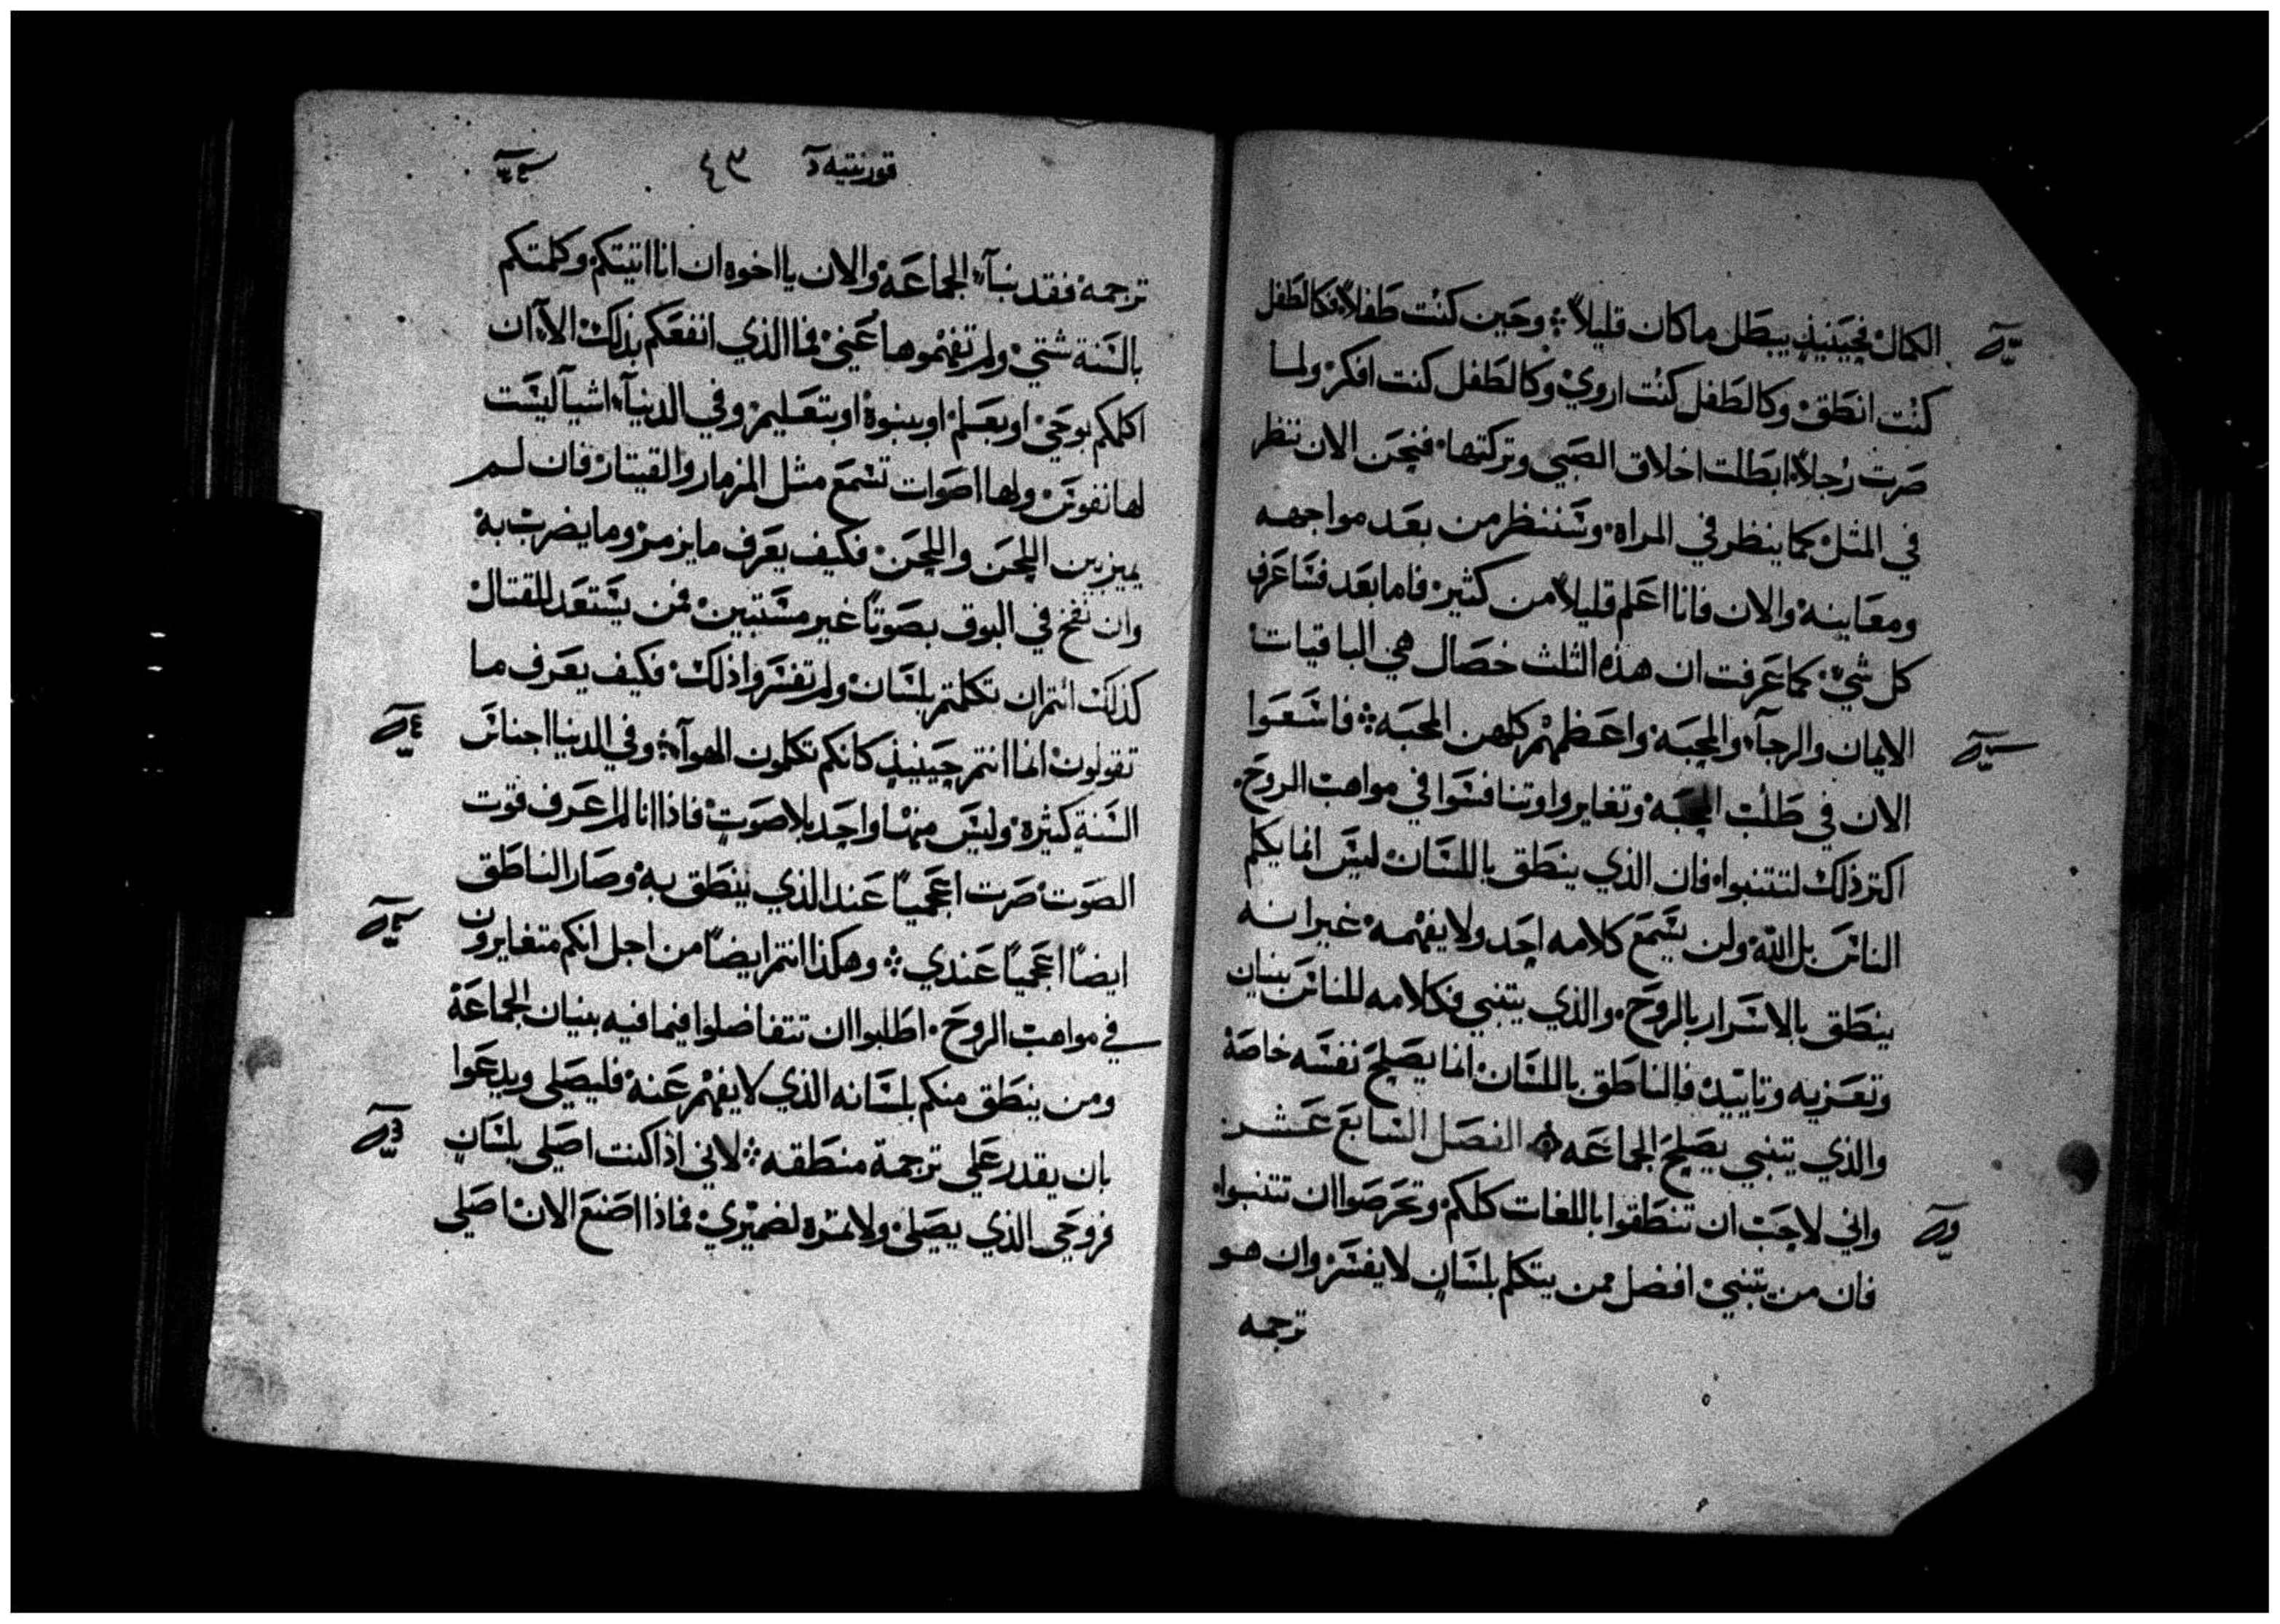 الكمال فحينيذ يبطل ما كان قليلاً ❖ وحين كنت طفلاً فكالطفل
كنت انطق وكالطفل كنت اروي وكالطفل كنت افكر ولما
صرت رجلاً ابطلت اخلاق الصبي وتركتها فنحن الان ننظر
في المثل كما ينظر في المراه وسننظر من بعد مواجهه
ومعاينه والان فانا اعلم قليلاً من كثير فاما بعد فساعرف
كل شي كما عرفت ان هذه الثلث خصال هي الباقيات
الايمان والرجآء والمحبه واعظمهم كلهن المحبه ❖ فاسعوا
الان في طلب المحبه وتغايروا وتنافسوا في مواهب الروح
اكتر ذلك لتتنبوا فان الذي ينطق باللسان ليس انما يكلم
الناس بل الله ولن يسمع كلامه احد ولا يفهمه غير انه
ينطق بالاسرار بالروح والذي يتنبي فكلامه للناس بنيان
وتعزيه وتاييد فالناطق باللسان انما يصلح نفسه خاصة
والذي يتنبي يصلح الجماعه الفصل السابع عشر
واني لاحب ان تنطقوا باللغات كلكم وتحرصوا ان تتنبوا
فان من يتنبي افضل ممن يتكلم بلسان لا يفسر وان هو
ترجمه
قورنتيه ٤٣
ترجمة فقد بنآء الجماعة والان يا اخوه ان انا اتيتكم وكلمتكم
بالسنة شتي ولم تفهموها عني فما الذي انفعكم بذلك الا ان
اكلمكم بوحي او بعلم او بنبوة او بتعليم وفي الدنيآء اشيآ ليست
لها نفوس ولها اصوات تسمع مثل المزمار والقيتار فان لم
يميز بين اللحن واللحن فكيف يعرف ما يزمز وما يضرب به
وان نفخ في البوق بصوتاً غير مستبين فمن يستعد للقتال
كذلك انتم ان تكلمتم بلسان ولم تفسروا ذلك فكيف يعرف ما
تقولون انما انتم حينيذ كانكم تكلمون الهوآء وفي الدنيا اجناس
السنة كثيرة وليس منها واحد بلا صوت فاذا انا لم اعرف قوت
الصوت صرت اعجمياً عند الذي ينطق به وصار الناطق
ايضاً اعجمياً عندي ❖ وهكذا انتم ايضاً من اجل انكم متغايرون
في مواهب الروح اطلبوا ان تتفاضلوا فيما فيه بنيان الجماعة
ومن ينطق منكم بلسانه الذي لا يفهم عنه فليصلي ويدعوا
بان يقدر علي ترجمة منطقه ❖ لاني اذا كنت اصلي بلسان
فروحي الذي يصلي ولا تمرة لضميري فماذا اصنع الان اصلي